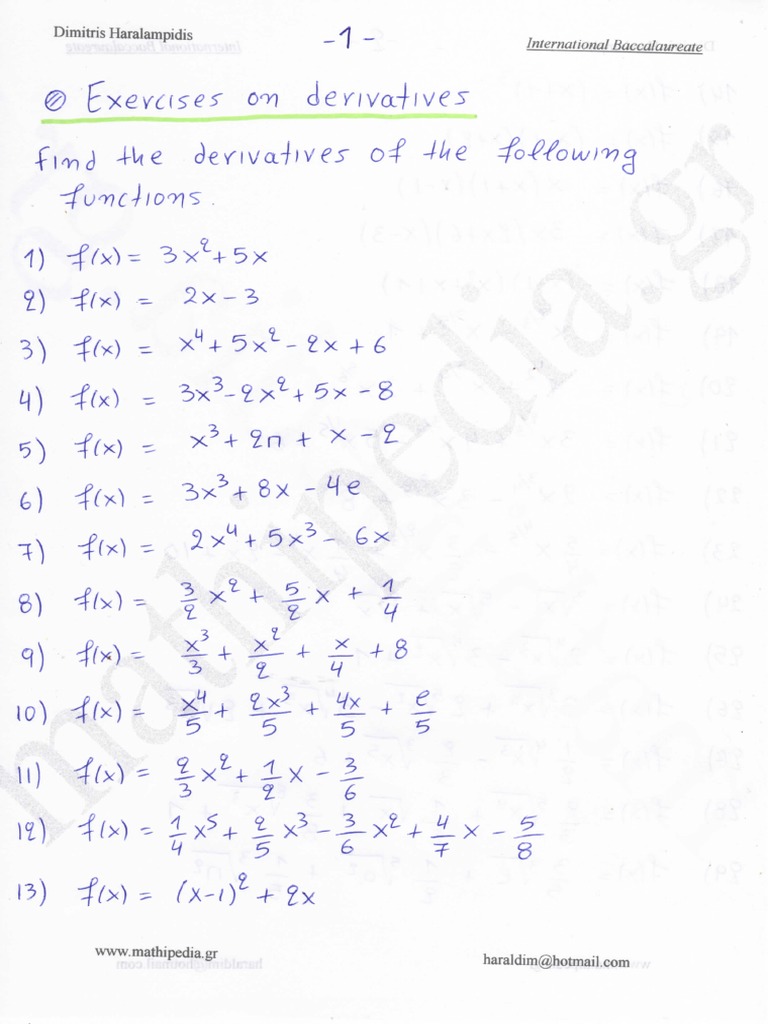 Dimitris Haralampidis
-1-
International Baccalaureate
Exercises on derivatives
Find the derivatives of the following
functions.
1) f(x) = 3x² + 5x
2) f(x) = 2x - 3
3) f(x) = x⁴ + 5x² - 2x + 6
4) f(x) = 3x³ - 2x² + 5x - 8
5) f(x) = x³ + 2π + x - 2
6) f(x) = 3x³ + 8x - 4e
7) f(x) = 2x⁴ + 5x³ - 6x
8) f(x) = 3/2 x² + 5/2 x + 1/4
9) f(x) = x³/3 + x²/2 + x/4 + 8
10) f(x) = x⁴/5 + 2x³/5 + 4x/5 + e/5
11) f(x) = 2/3 x² + 1/2 x - 3/6
12) f(x) = 1/4 x⁵ + 2/5 x³ - 3/6 x² + 4/7 x - 5/8
13) f(x) = (x-1)² + 2x
www.mathipedia.gr
haraldim@hotmail.com
mathipedia.gr